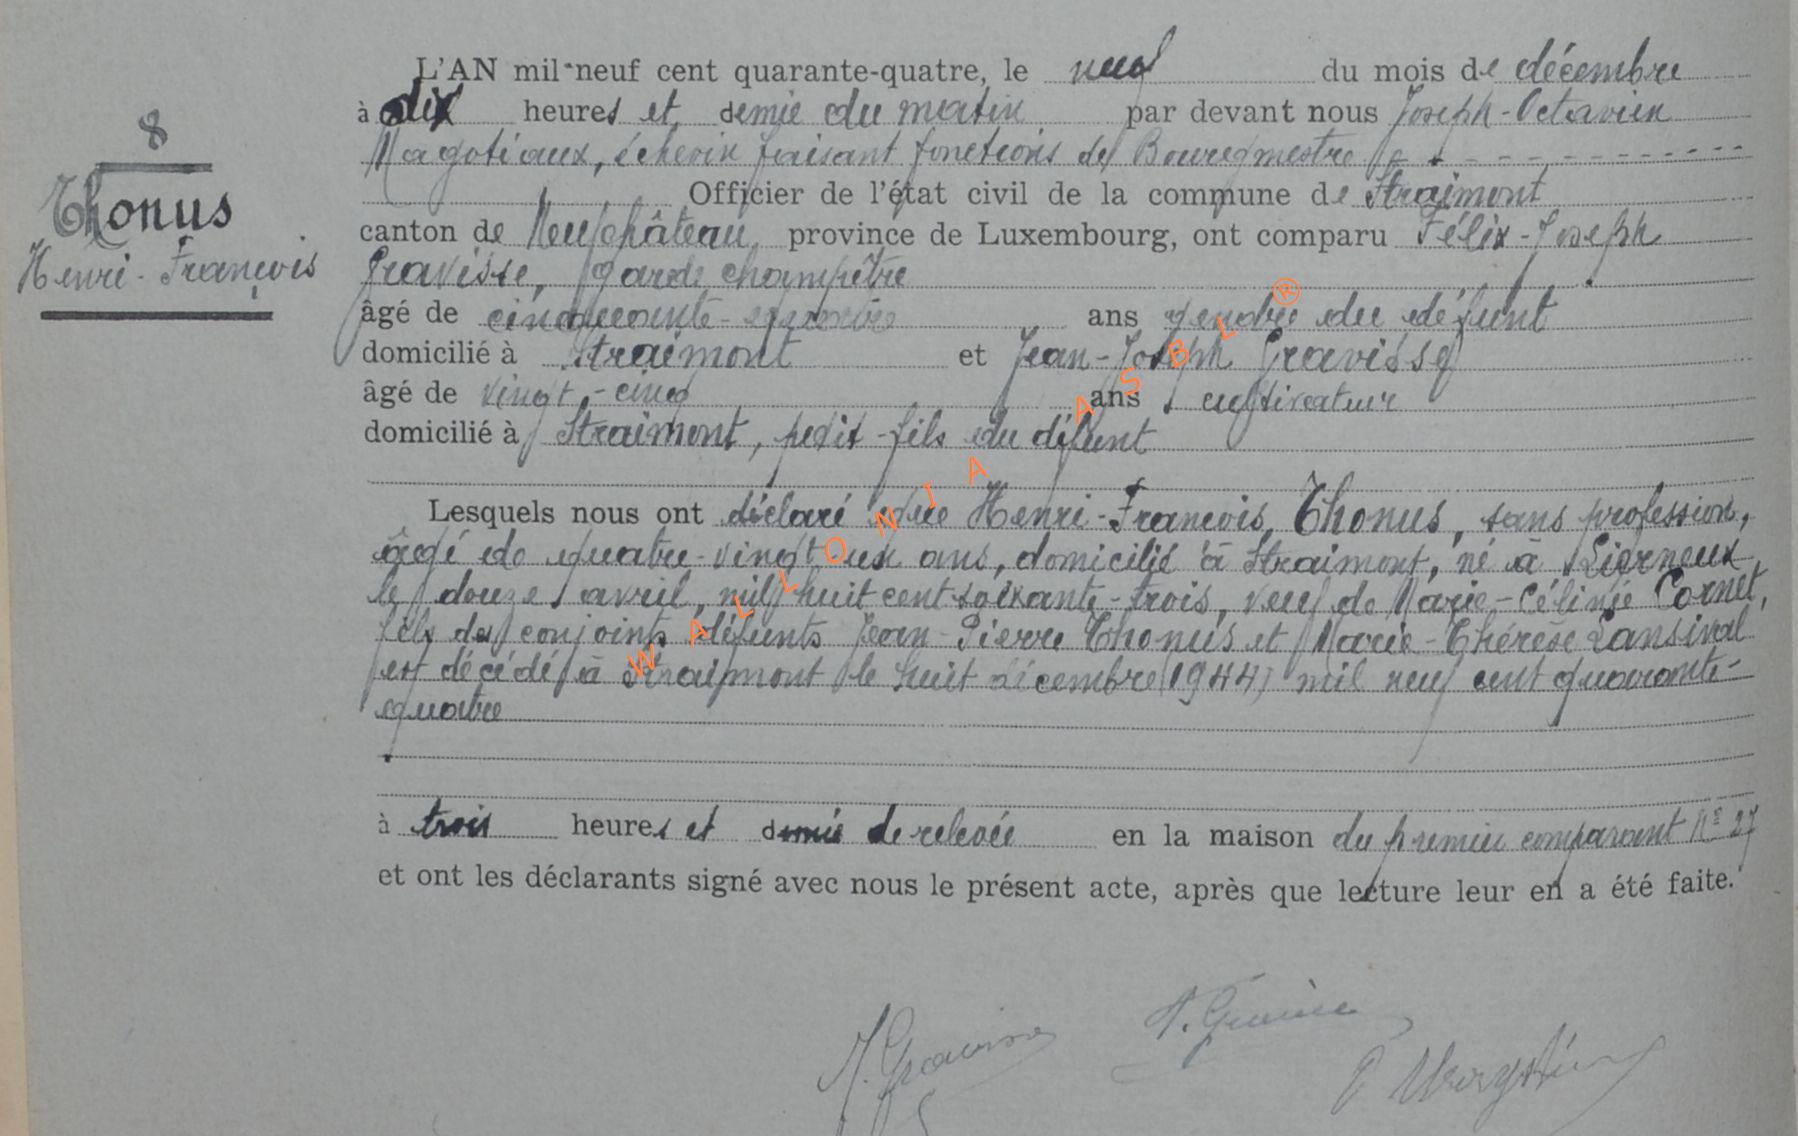 8
Thonus
Henri-François
L'AN mil neuf cent quarante-quatre, le neuf du mois de décembre
à dix heures et demie du matin par devant nous Joseph-Octavien
Magotiaux, échevin faisant fonctions de Bourgmestre
Officier de l'état civil de la commune de Straimont
canton de Neufchâteau, province de Luxembourg, ont comparu Félix-Joseph
Gravisse, garde champêtre
âgé de cinquante- ans gendre du défunt
domicilié à Straimont et Jean-Joseph Gravisse
âgé de vingt-cinq ans cultivateur
domicilié à Straimont, petit-fils du défunt
Lesquels nous ont déclaré que Henri-François, Thonus, sans profession,
âgé de quatre-vingt un ans, domicilié à Straimont, né à Lierneux
le douze avril, mil huit cent soixante-trois, veuf de Marie-Célinie Cornet,
fils des conjoints défunts Jean-Pierre Thonus et Marie-Thérèse Lansival
est décédé à Straimont le huit décembre (1944) mil neuf cent quarante-
quatre
à trois heures et demie de relevée en la maison du premier comparant N° 27
et ont les déclarants signé avec nous le présent acte, après que lecture leur en a été faite.
J. Gravisse
WALLONIA ASBL®